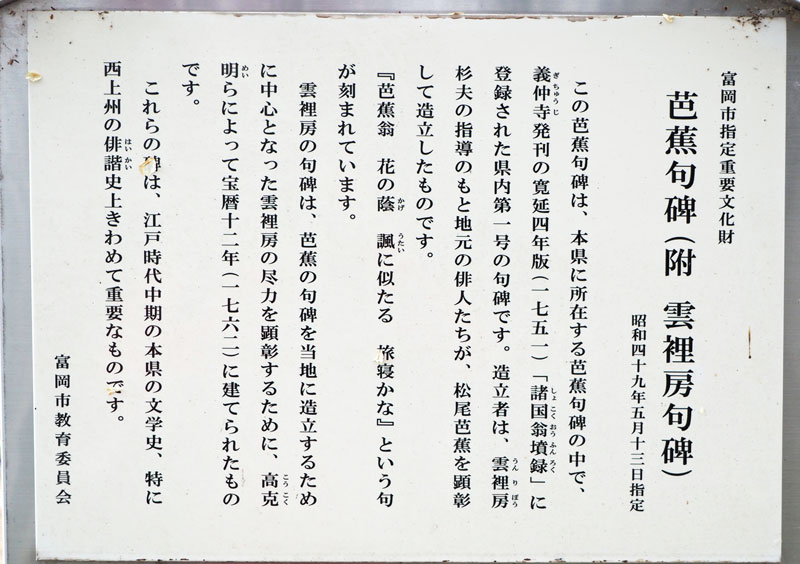 富岡市指定重要文化財
芭蕉句碑（附 雲裡房句碑）
昭和四十九年五月十三日指定
この芭蕉句碑は、本県に所在する芭蕉句碑の中で、
義仲寺発刊の寛延四年版（一七五一）「諸国翁墳録」に
登録された県内第一号の句碑です。造立者は、雲裡房
杉夫の指導のもと地元の俳人たちが、松尾芭蕉を顕彰
して造立したものです。
『芭蕉翁 花の蔭 諷に似たる 旅寝かな』という句
が刻まれています。
雲裡房の句碑は、芭蕉の句碑を当地に造立するため
に中心となった雲裡房の尽力を顕彰するために、高克
明らによって宝暦十二年（一七六二）に建てられたもの
です。
これらの碑は、江戸時代中期の本県の文学史、特に
西上州の俳諧史上きわめて重要なものです。
富岡市教育委員会